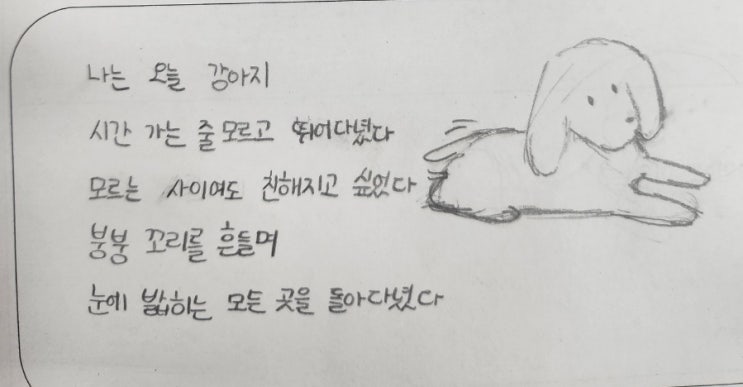 나는 오늘 강아지
시간 가는 줄 모르고 뛰어다녔다
모르는 사이여도 친해지고 싶었다
붕붕 꼬리를 흔들며
눈에 밟히는 모든 곳을 돌아다녔다